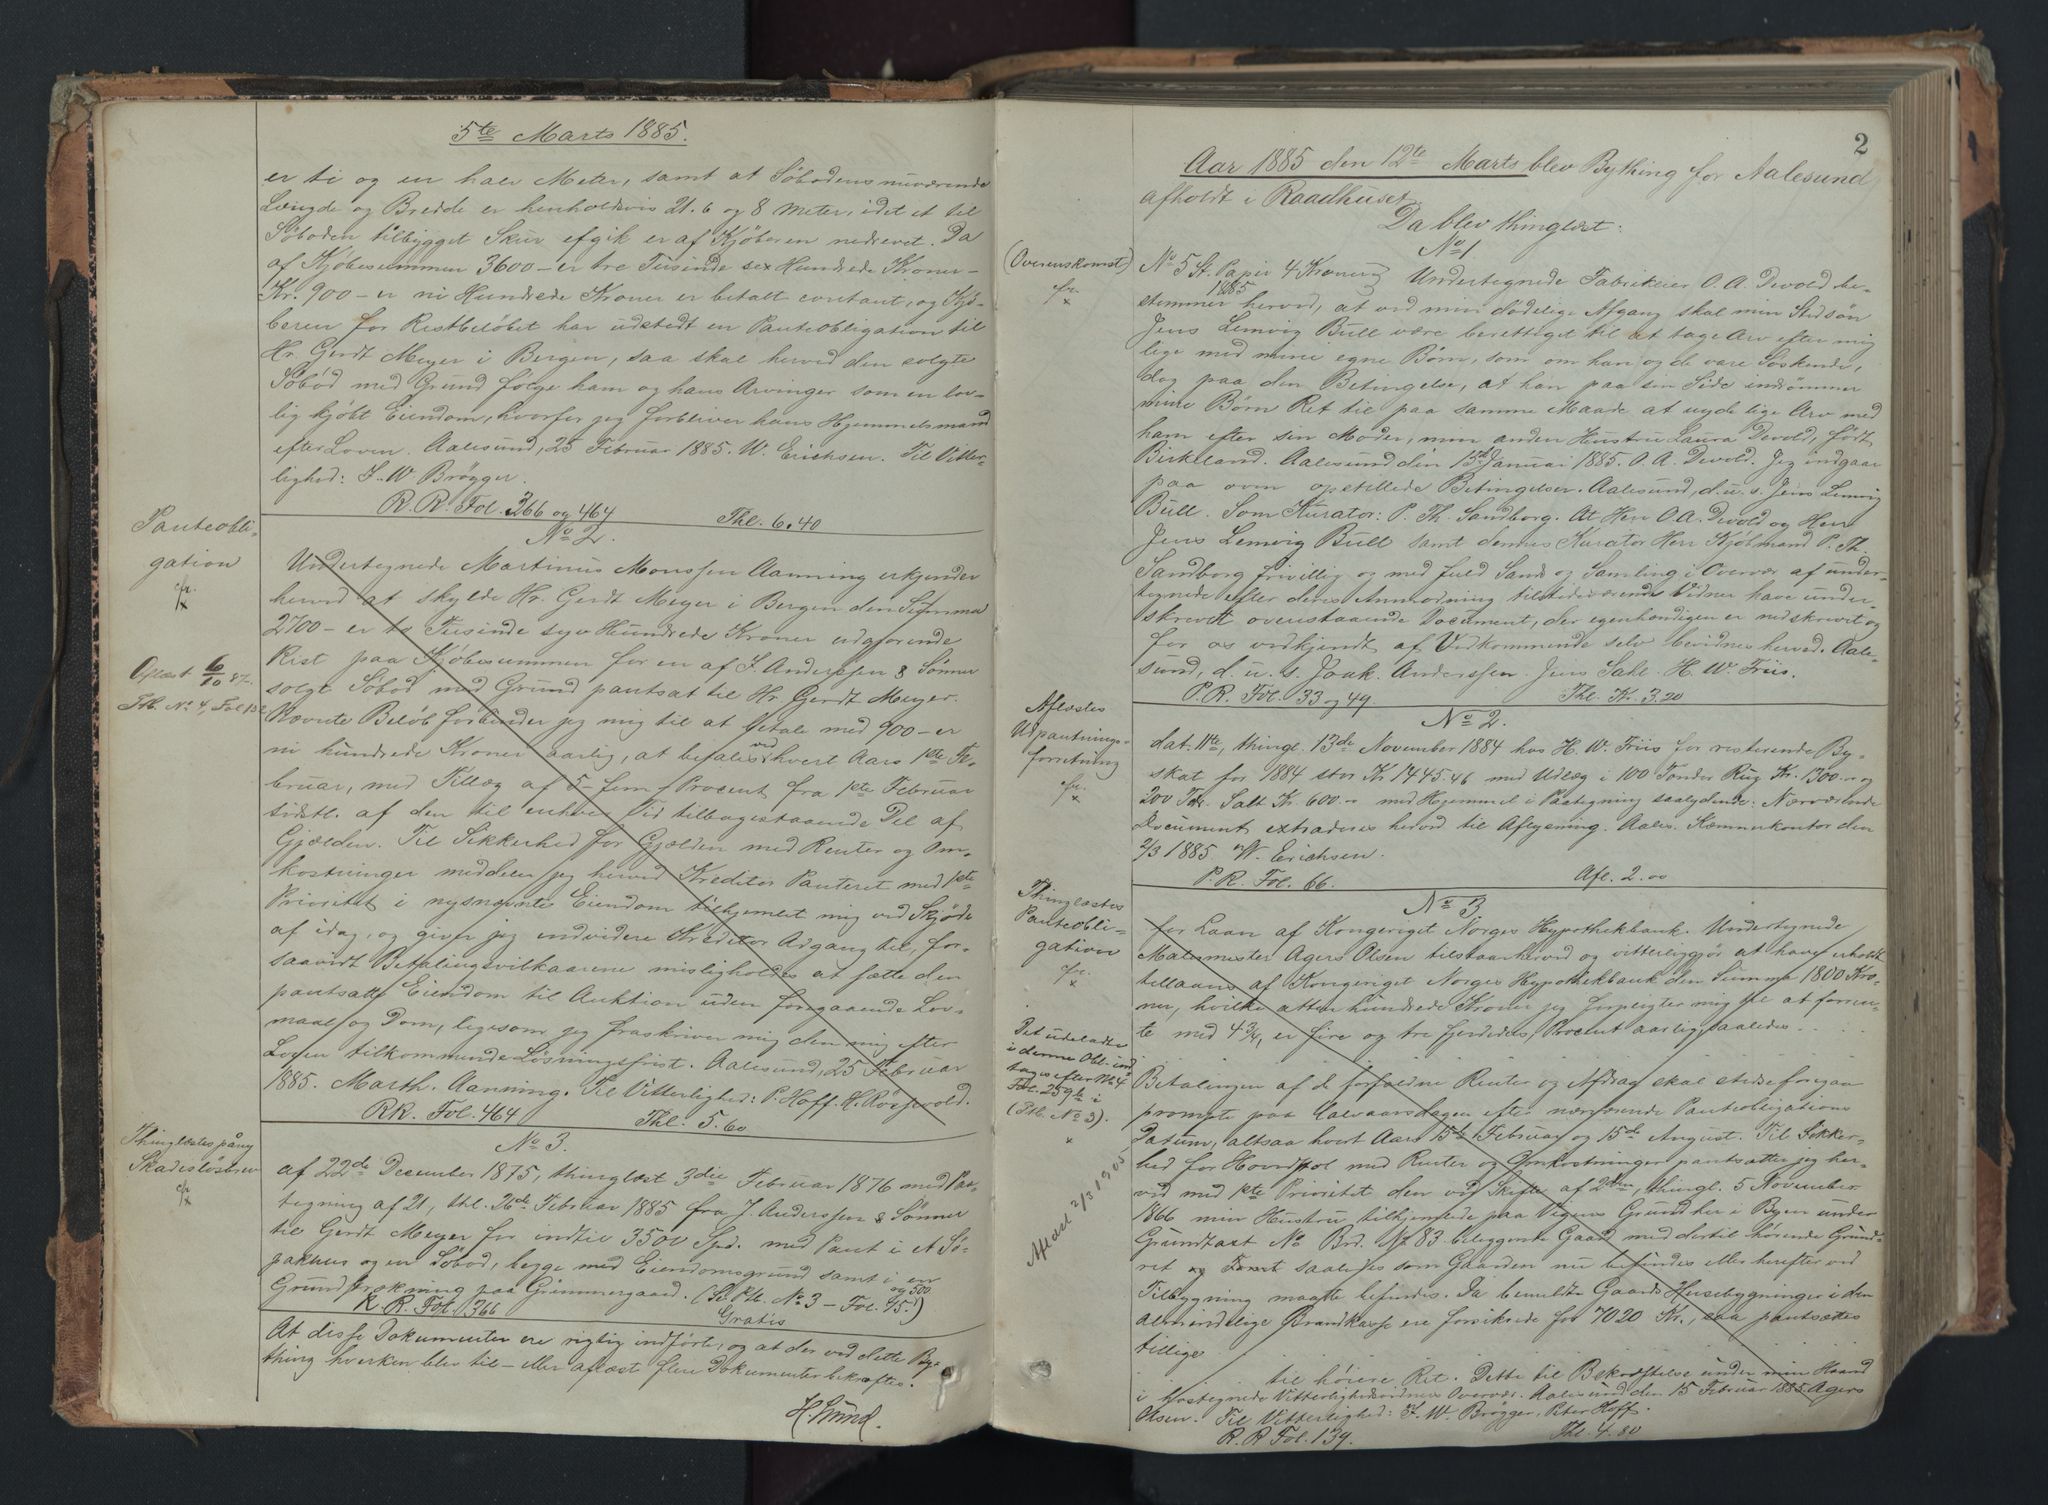 5te Marts 1885.
er ti og en halv Meter, samt at Søbodens nuværende
Længde og Bredde er henholdsvis 21.6 og 8 Meter, idet et til
Søboden tilbygget Skur efgik er af Kjøberen nedrevet. Da
af Kjøbesummen 3600 – er tre Tusinde sex Hundrede Kroner –
Kr. 900 – er ni Hundrede Kroner er betalt contant, og Kjø-
beren for Restbeløbet har udstedt en Panteobligation til
Hr. Gerdt Meyer i Bergen, saa skal herved den solgte
Søbod med Grund følge ham og hans Arvinger som en lov-
lig kjøbt Eiendom, hvorfor jeg forbliver hans Hjemmelsmand
efter Loven. Aalesund, 25 Februar 1885. W. Erichsen. Til Vitter-
lighed: F. W. Brøgger.
R. R. Fol. 366 og 464 Thl. 6.40
Panteobli-
gation
cfr.
x
No 2.
Undertegnede Martinus Monssen Aanning erkjender
herved at skylde Hr. Gerdt Meyer i Bergen den Summa
2700 – er to Tusinde syv Hundrede Kroner udgjørende
Rest paa Kjøbesummen for en af J. Anderssen & Sønner
solgt Søbod med Grund pantsat til Hr. Gerdt Meyer.
Aflæst 6/10 87.
Ptb. No 4, Fol 132
Nævnte Beløb forbinder jeg mig til at betale med 900 – er
ni hundrede Kroner aarlig, at betales ved hvert Aars 1ste Fe-
bruar, med Tillæg af 5 – fem – Procent fra 1ste Februar
sidstl. af den til enhver Tid tilbagestaaende Del af
Gjælden. Til Sikkerhed for Gjælden med Renter og Om-
kostninger meddeler jeg herved Kreditor Panteret med 1ste
Prioritet i nysnævnte Eiendom tilhjemlet mig ved Skjøde
af idag, og giver jeg endvidere Kreditor Adgang til, for-
saavidt Betalingsvilkaarene misligholdes at sætte den
pantsatte Eiendom til Auktion uden foregaaende Lov-
maal og Dom, ligesom jeg fraskriver mig den mig efter
Loven tilkommende Løsningsfrist. Aalesund, 25 Februar
1885. Marth. Aanning. Til Vitterlighed: P. Hoff. H. Røssevold.
R.R. Fol. 464 Thl. 5.60
Thinglæstes påny
Skadesløsbrev
cfr.
x
No 3.
af 22de December 1875, thinglæst 3die Februar 1876 med Paa-
tegning af 21, thl. 26de Februar 1885 fra J. Anderssen & Sønner
til Gerdt Meyer for indtil 3500 Spd. med Pant i et Sø-
pakhus og en Søbod, begge med Eiendomsgrund samt i en
Grundstrækning paa Grimmergaard. (Se Ptb. No 3 – Fol. 95. og 500)
R. R. Fol. 366 Gratis
At disse Dokumenter ere rigtig indførte, og at der ved dette By-
thing hverken blev til – eller aflæst flere Dokumenter bekræftes.
H. Lund.
2
Aar 1885 den 12te Marts blev Bything for Aalesund
afholdt i Raadhuset.
Da blev thinglæst:
No 1
(Overenskomst)
cfr.
x
No 5 St. Papir 4 Kroner 1885 Undertegnede Fabrikeier O. A. Devold be-
stemmer herved, at ved min dødelige Afgang skal min Stedsøn
Jens Lemvig Bull være berettiget til at tage Arv efter mig
lige med mine egne Børn, som om han og de vare Søskende,
dog paa den Betingelse, at han paa sin Side indrømmer
mine Børn Ret til paa samme Maade at nyde lige Arv med
ham efter sin Moder, min anden Hustru Laura Devold, født
Birkeland. Aalesund den 13de Januar 1885. O. A. Devold. Jeg indgaar
paa oven opstillede Betingelser. Aalesund, d. u. s. Jens Lemvig
Bull. Som Kurator: P. Th. Sandborg. At Herr O. A. Devold og Herr
Jens Lemvig Bull samt dennes Kurator Herr Kjøbmand P. Th.
Sandborg frivillig og med fuld Sands og Samling i Overvær af under-
tegnede efter deres Anmodning tilstedeværende Vidner have under-
skrevet ovenstaaende Document, der egenhændigen er nedskrevet og
for os vedkjendt af Vedkommende selv bevidnes herved. Aale-
sund, d. u. s. Joak. Anderssen. Jens Dahl. H. W. Friis.
P. R. Fol. 33 og 49. Thl. Kr. 3.20
Aflæstes
Udpantnings-
forretning
cfr.
x
No 2.
dat. 11te, thingl. 13de November 1884 hos H. W. Friis for resterende By-
skat for 1884 stor Kr. 1445.46 med Udlæg i 100 Tønder Rug Kr. 1300.– og
200 Tdr. Salt Kr. 600.– med Hjemmel i Paategning saalydende: Nærværende
Document extraderes herved til Aflysning. Aales. Kæmnerkontor den
2/3 1885. W. Erichsen.
P. R. Fol. 66. Afl. 2.00
Thinglæstes
Panteobli-
gation
cfr.
x
No 3
for Laan af Kongeriget Norges Hypothekbank. Undertegnede
Malermester Agers Olsen tilstaar herved og vitterliggjør at have erholdt
tillaans af Kongeriget Norges Hypothekbank den Summa 1800 Kro-
ner, hvilke atten hundrede Kroner jeg forpligter mig til at forren-
te med 4 3/4, er fire og tre fjerdedels, Procent aarlig saaledes . . . .
Det udeladte
i denne Obl. ind-
tages efter No 4
Fol. 259 te i
(Ptb. No 3).
x
Aflæst 2/3 1905
Betalingen af de forfaldne Renter og Afdrag skal stedse foregaa
prompte paa Halvaarsdagen efter nærværende Panteobligations
Datum, altsaa hvert Aars 15de Februar og 15de August. Til Sikker-
hed for Hovedstol med Renter og Omkostninger pantsætter jeg her-
ved med 1ste Prioritet den ved Skifte af 2den, thingl. 5 November
1866 min Hustru tilhjemlede paa Vegens Grund her i Byen under
Grundtaxt No Brd. No 83 beliggende Gaard med dertil hørende Grund-
ret og Tomt saaledes som Gaarden nu befindes eller herefter ved
Tilbygning maatte befindes. Da bemeldte Gaards Husebygninger i den
almindelige Brandkasse ere forsikrede for 7020 Kr., saa pantsættes
tillige
til høiere Ret. Dette til Bekræftelse under min Haand
i hostegnede Vitterlighedsvidners Overvær. Aalesund den 15 Februar 1885. Agers
Olsen. Til Vitterlighed: F. W. Brøgger, Peter Hoff.
R. R. Fol. 139. Thl. 4.80